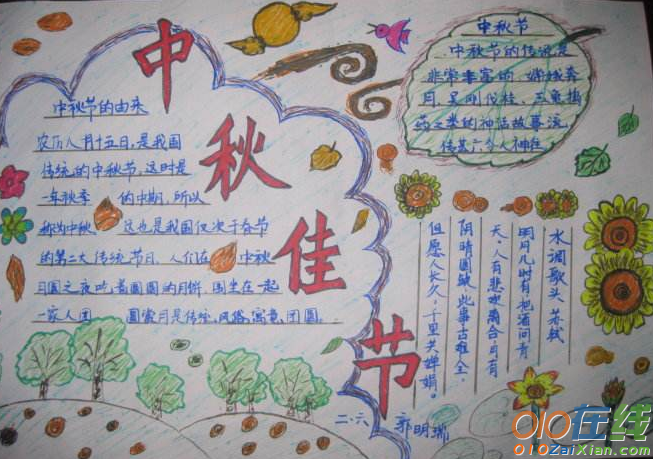 中秋佳节
中秋节的由来
农历八月十五日,是我国
传统的中秋节,这时是
一年秋季 的中期,所以
称为中秋 这也是我国仅次于春节
的第二大传统节日,人们在 中秋
月圆之夜吃着圆圆的月饼,围坐在一起
一家人团 圆赏月是传统,风俗,寓意,团圆。
中秋节
中秋节的传说是
非常丰富的,嫦娥奔
月,吴刚伐桂,玉兔捣
药之类的神话故事流
传
水调歌头 苏轼
明月几时有把酒问青
天,人有悲欢离合,月有
阴晴圆缺,此事古难全,
但愿人长久,千里共婵娟。
二、六 郭明瑞
010在线
010ZaiXian.com